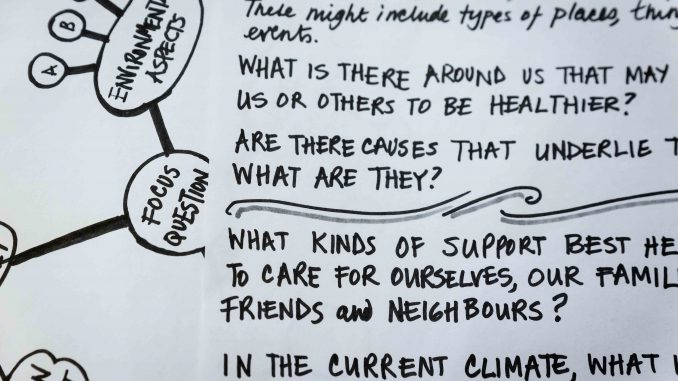 B
A
ENVIRONMENTAL
ASPECTS
FOCUS
QUESTION
These might include types of places,
events.
WHAT IS THERE AROUND US THAT MAY
US OR OTHERS TO BE HEALTHIER?
ARE THERE CAUSES THAT UNDERLIE
WHAT ARE THEY?
WHAT KINDS OF SUPPORT BEST
TO CARE FOR OURSELVES, OUR
FRIENDS and NEIGHBOURS?
IN THE CURRENT CLIMATE, WHAT